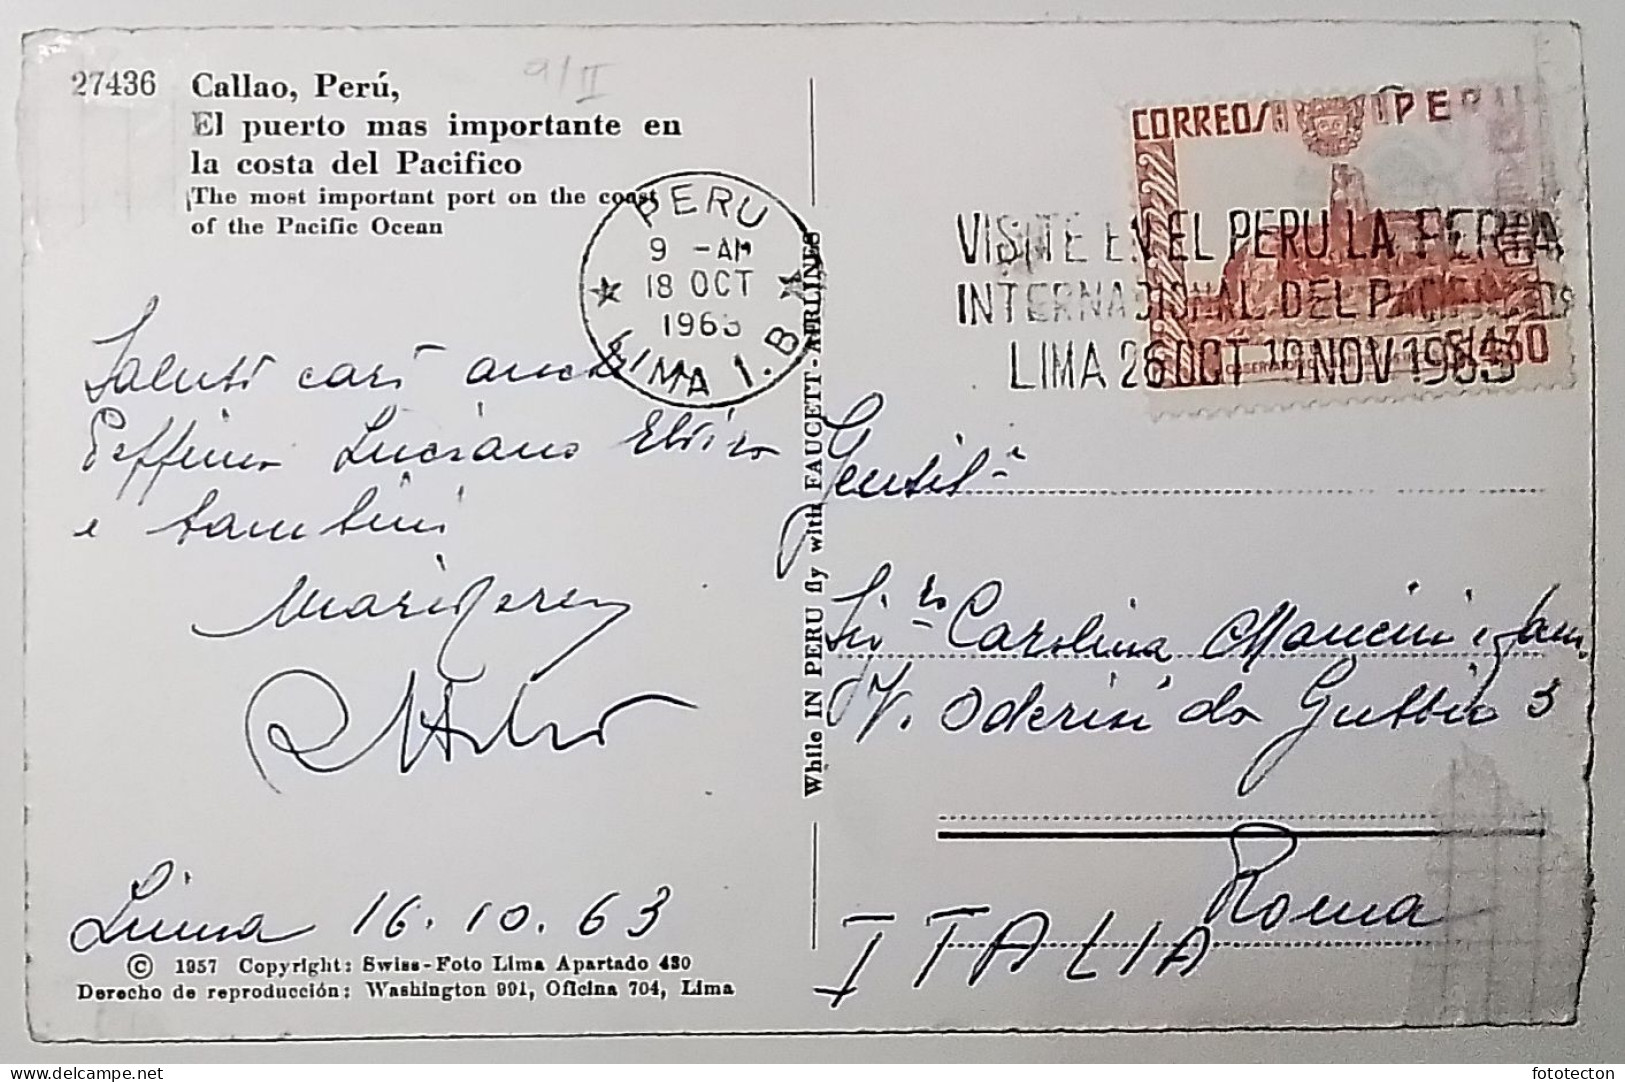 27436 Callao, Perú,
El puerto mas importante en
la costa del Pacifico
The most important port on the coast
of the Pacific Ocean
9/II
PERU
9 -AM
18 OCT
1963
LIMA 1.B
CORREOS PERU
VISITE EN EL PERU LA FERIA
INTERNACIONAL DEL PACIFICO
LIMA 26 OCT 10 NOV 1963
S/4.30
Saluti cari anche
Peffina Luciano Elvira
e bambini
Lima 16.10.63
© 1957 Copyright: Swiss-Foto Lima Apartado 430
Derecho de reproducción: Washington 991, Oficina 704, Lima
While IN PERU fly with FAUCETT-AIRLINES
Gentil.
Sig.ra Carolina Mancini e fam.
V. Oderisi da Gubbio 3
Roma
ITALIA
fototecton